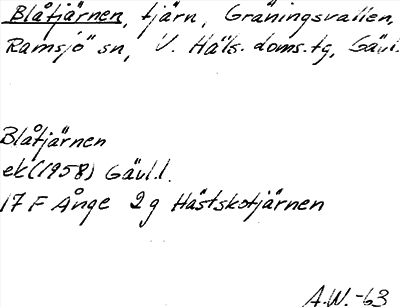 Blåtjärnen, tjärn, Gräningsvallen,
Ramsjö sn, V. Häls. doms.tg, Gävl.
Blåtjärnen
ek (1958) Gävl.l.
17 F Ånge 2g Hästskotjärnen
A.W.-63